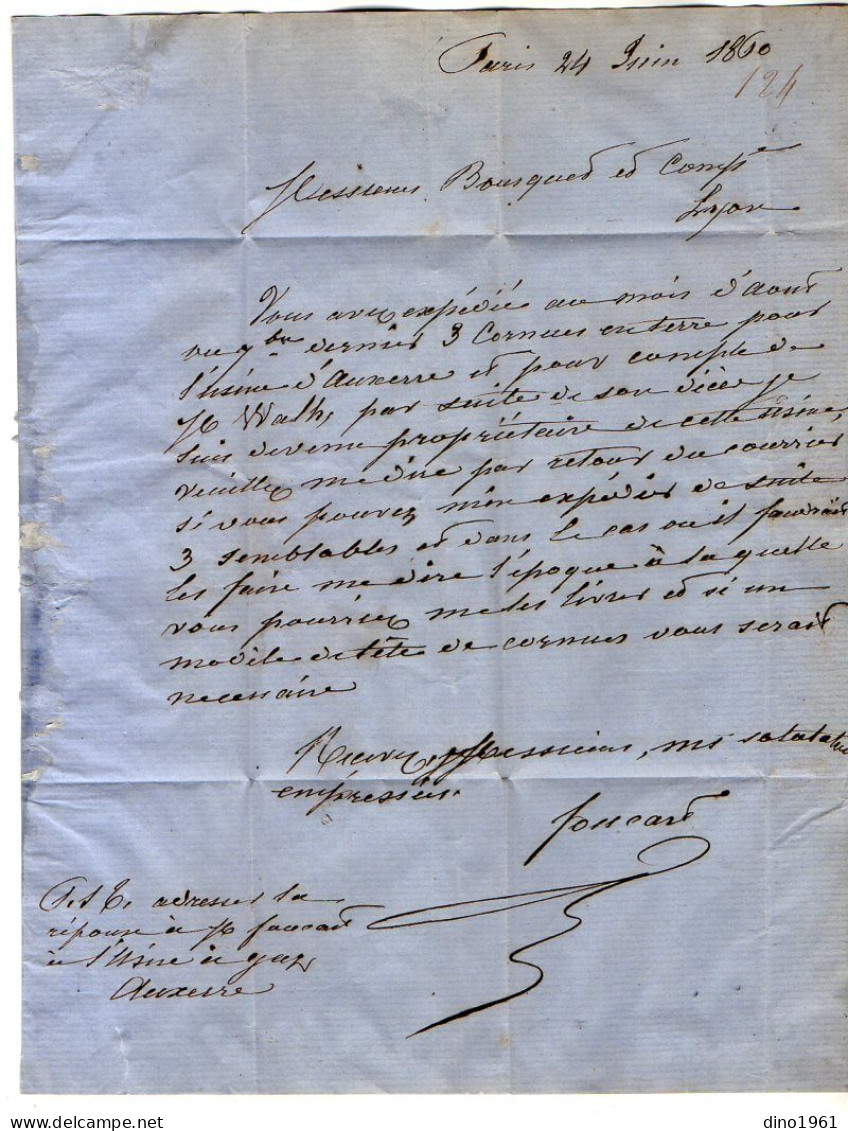 Paris 24 Juin 1860
124
Messieurs Bousquet et Compe
Lyon
Vous avez expédié au mois d'aout
ou 7bre dernier 3 Cornues en terre pour
l'usine d'Auxerre et pour compte de
M Walh, par suite de son décès je
suis devenu propriétaire de cette usine,
veuillez me dire par retour du courrier
si vous pouvez m'en expédier de suite
3 semblables et dans le cas ou il faudrait
les faire me dire l'époque à laquelle
vous pourriez me les livrer et si un
modèle de tête de cornues vous serait
necessaire
Recevez, Messieurs, mes salutations
empressées.
foucart
P.S adresser la
réponse à M foucart
à l'Usine à gaz
Auxerre
dino1961